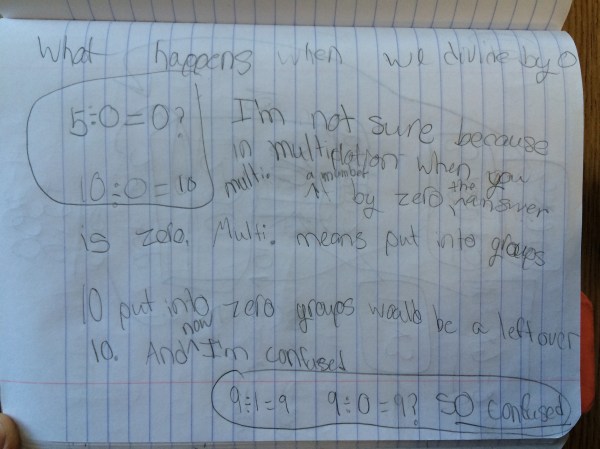 What happens when we divine by 0
5÷0=0?
10÷0=10
I'm not sure because
in multiplation when you
multi. a number by zero, the answer
is zero. Multi. means put into groups
10 put into zero groups would be a left over
10. And now I'm confused
9÷1=9 9÷0=9? SO confused